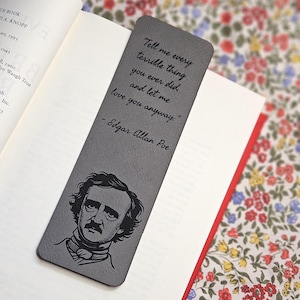 "Tell me every
terrible thing
you ever did,
and let me
love you anyway."
- Edgar Allan Poe